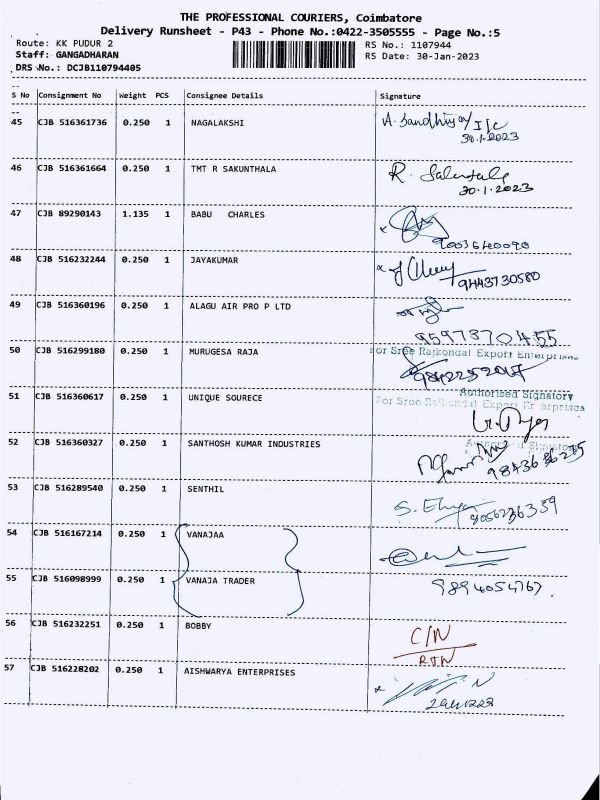 THE PROFESSIONAL COURIERS, Coimbatore
Delivery Runsheet - P43 - Phone No.:0422-3505555 - Page No.:5
Route: KK PUDUR 2 RS No.: 1107944
Staff: GANGADHARAN RS Date: 30-Jan-2023
DRS No.: DCJB110794405
S No Consignment No Weight PCS Consignee Details Signature
45 CJB 516361736 0.250 1 NAGALAKSHI
30.1.2023
46 CJB 516361664 0.250 1 TMT R SAKUNTHALA R.
30.1.2023
47 CJB 89290143 1.135 1 BABU CHARLES
9003640090
48 CJB 516232244 0.250 1 JAYAKUMAR
9443730580
49 CJB 516360196 0.250 1 ALAGU AIR PRO P LTD
9597370455
50 CJB 516299180 0.250 1 MURUGESA RAJA For Sree Rajkondal Export Enterprises
Authorised Signatory
51 CJB 516360617 0.250 1 UNIQUE SOURECE For Sree Rajkondal Export Enterprises
Authorised Signatory
52 CJB 516360327 0.250 1 SANTHOSH KUMAR INDUSTRIES
53 CJB 516289540 0.250 1 SENTHIL
54 CJB 516167214 0.250 1 VANAJAA
55 CJB 516098999 0.250 1 VANAJA TRADER 9894054767
56 CJB 516232251 0.250 1 BOBBY C/N
RTN
57 CJB 516228202 0.250 1 AISHWARYA ENTERPRISES